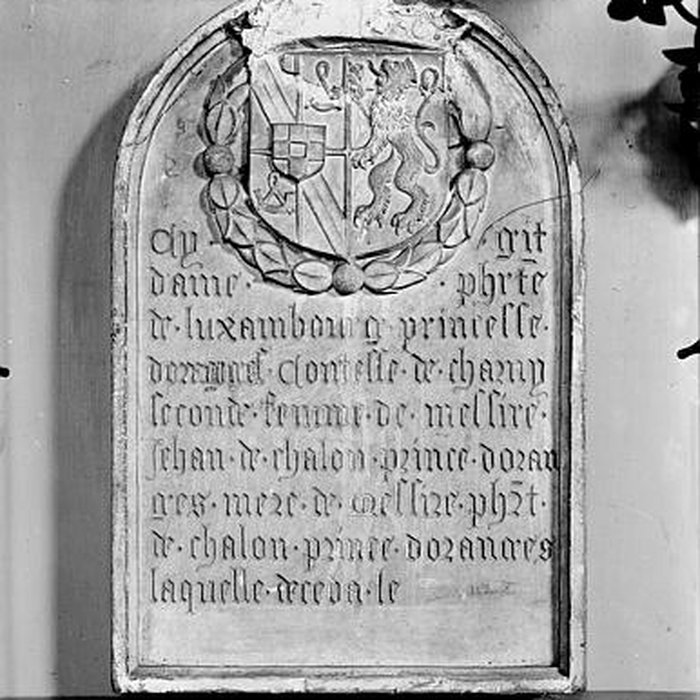 Cy · git
dame · phrte
de · luxambourg · princesse ·
doranges · Contesse · de · charny
seconde · femme · de · messire ·
Jehan · de · chalon · prince · doran
ges · mere · de · messire · phrt ·
de · chalon · prince · doranges
laquelle · deceda · le